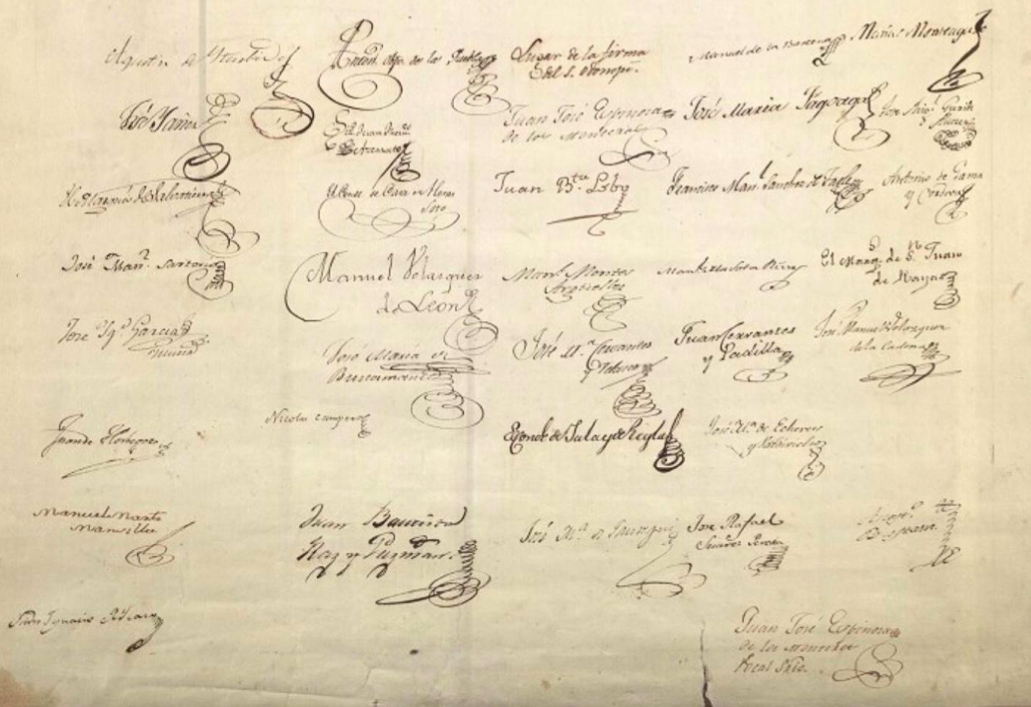 Agustin de Iturbide
Anton. Obpo. de la Puebla
Lugar de la firma
del S. Odonojú.
Manuel de la Barcena
Matias Monteagudo
José Yañez
Juan Franco.
Juan José Espinosa
de los Monteros
José Maria Fagoaga
José Migl. Guridi
Alcocer
El Marqués de Salvatierra
El Conde de Casa de Heras
Soto
Juan Bta. Lobo
Francisco Manl. Sanchez de Tagle
Antonio de Gama
y Cordova
José Manl. Sartorio
Manuel Velazquez
de Leon
Manl. Montes
Arguelles
Manl. de la Sota Riva
El Marqs. de Sn. Juan
de Rayas
José Igo. Garcia
Illueca
José Maria de
Bustamante
José Ma. Cervantes
y Velasco
Juan Cervantes
y Padilla
José Manuel Velazquez
de la Cadena
Juan de Horbegoso
Nicolas Campero
El Conde de Jala y de Regla
José Ma. de Echevers
y Valdivielso
Manuel Martz.
Mansilla
Juan Bautista
Raz y Guzman.
José Ma. de Jauregui
José Rafael
Suarez Pereda
Anasto.
Bustamte.
Isidro Ignacio de Icaza
Juan José Espinosa
de los Monteros
Vocal Srio.